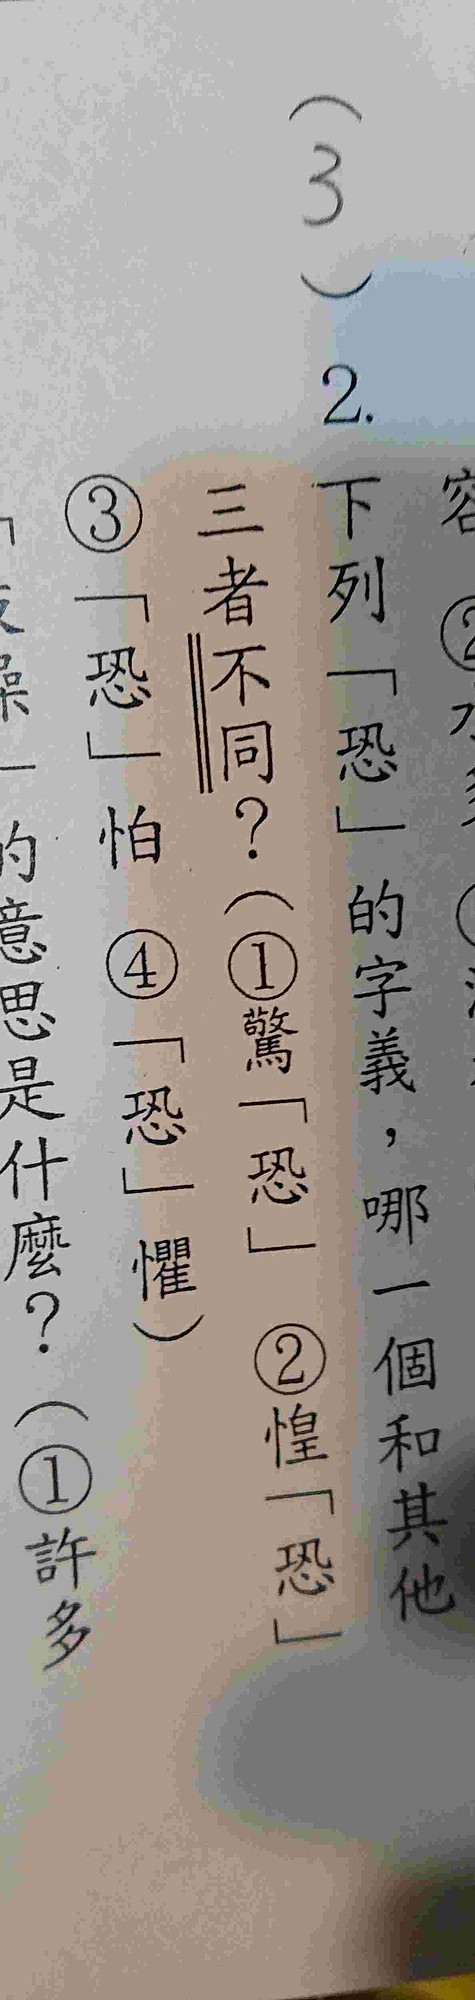 容 ②
(3) 2. 下列「恐」的字義，哪一個和其他
三者不同？(①驚「恐」 ②惶「恐」
③「恐」怕 ④「恐」懼)
的意思是什麼？(①許多